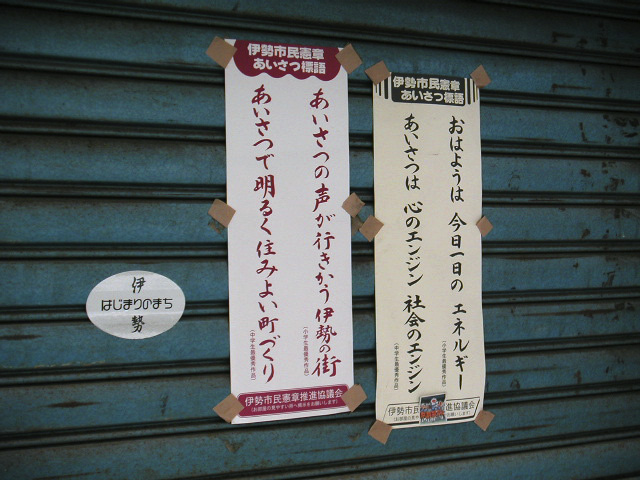 伊勢市民憲章
あいさつ標語
あいさつの声が行きかう伊勢の街
(小学生最優秀作品)
あいさつで明るく住みよい町づくり
(中学生最優秀作品)
伊勢市民憲章推進協議会
(お部屋の見やすい所へ掲示をお願いします)
伊勢市民憲章
あいさつ標語
おはようは 今日一日の エネルギー
(小学生最優秀作品)
あいさつは 心のエンジン 社会のエンジン
(中学生最優秀作品)
伊勢市民 進協議会
伊
はじまりのまち
勢